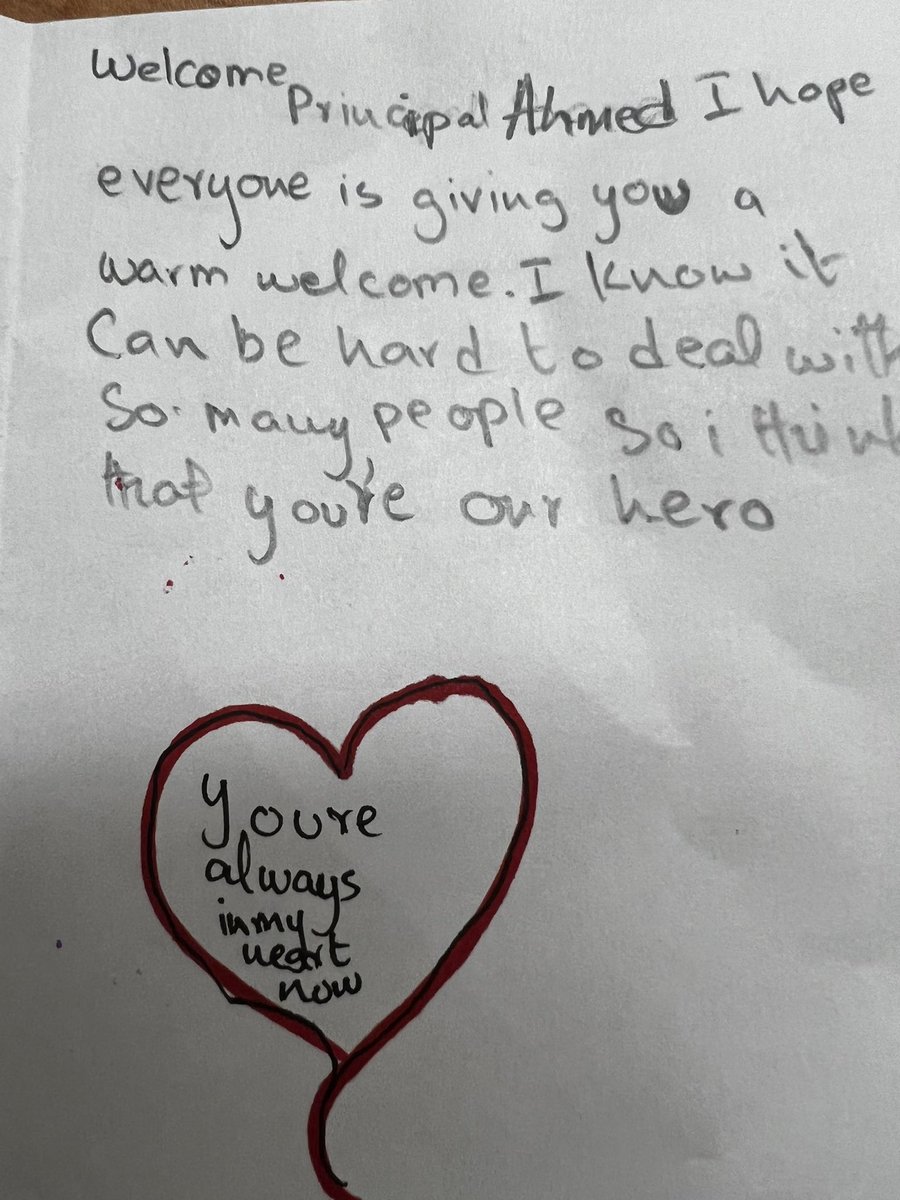 Welcome
Principal Ahmed I hope
everyone is giving you a
warm welcome. I know it
Can be hard to deal with
So many people so i think
that you're our hero
youre
always
in my
heart
now